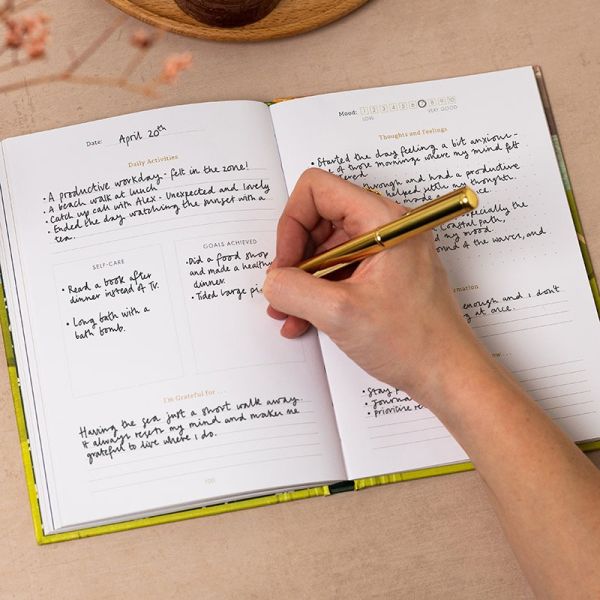 Date: April 20th
Daily Activities
• A productive workday - felt in the zone!
• A beach walk at lunch
• Catch up call with Alex - Unexpected and lovely
• Ended the day watching the sunset with a
tea.
SELF-CARE
• Read a book after
dinner instead of TV.
• Long bath with a
bath bomb.
GOALS ACHIEVED
• Did a food shop
and made a
dinner.
• Tided large
I'm Grateful for . . .
Having the sea just a short walk away.
It always resets my mind and makes me
grateful to live where I do.
Mood: 1 2 3 4 5 6 8 9 10
LOW VERY GOOD
Thoughts and feelings
• Started the day feeling a bit anxious -
of those mornings where my mind felt
through and had a productive
helped settle my thoughts.
made a
especially the
coastal path,
my mood
around of the waves, and
enough and I don't
at once.
• Stay
• Journal
• Prioritise